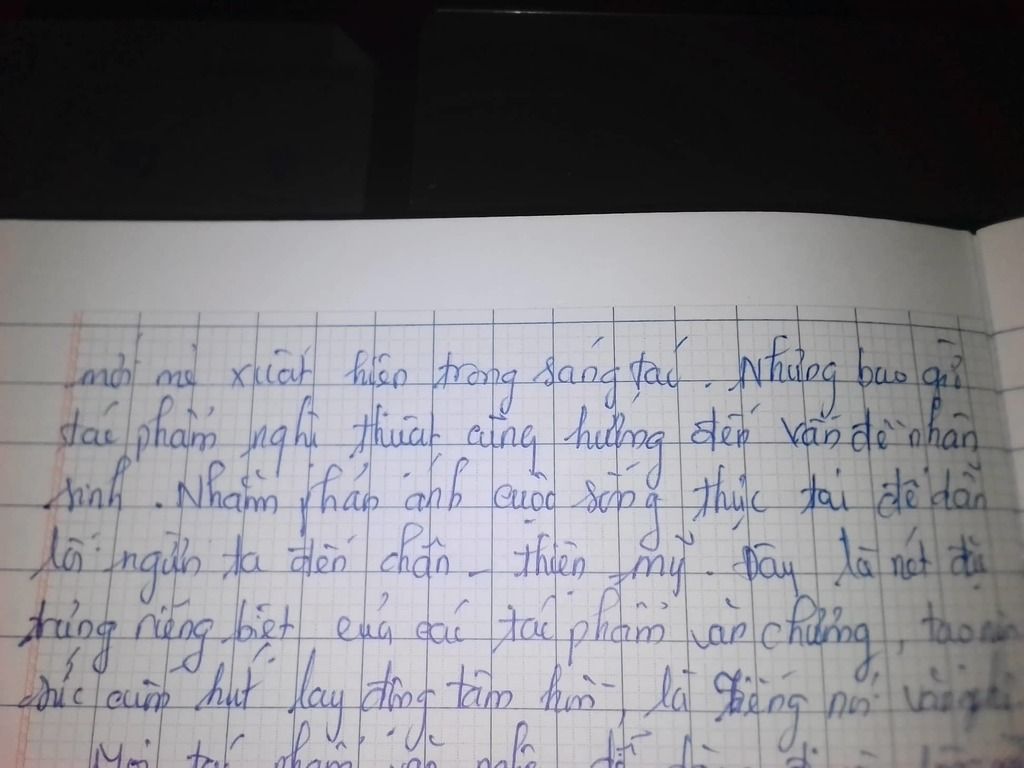 mới mẻ xuất hiện trong sáng tác. Nhưng bao giờ
tác phẩm nghệ thuật cũng hướng đến vấn đề nhân
sinh. Nhằm phản ánh cuộc sống thực tại để dẫn
lối người ta đến chân - thiện - mỹ. Đây là nét đặc
trưng riêng biệt của các tác phẩm văn chương, tạo nên
sức cuốn hút lay động tâm hồn, là tiếng nói
Mỗi tác phẩm